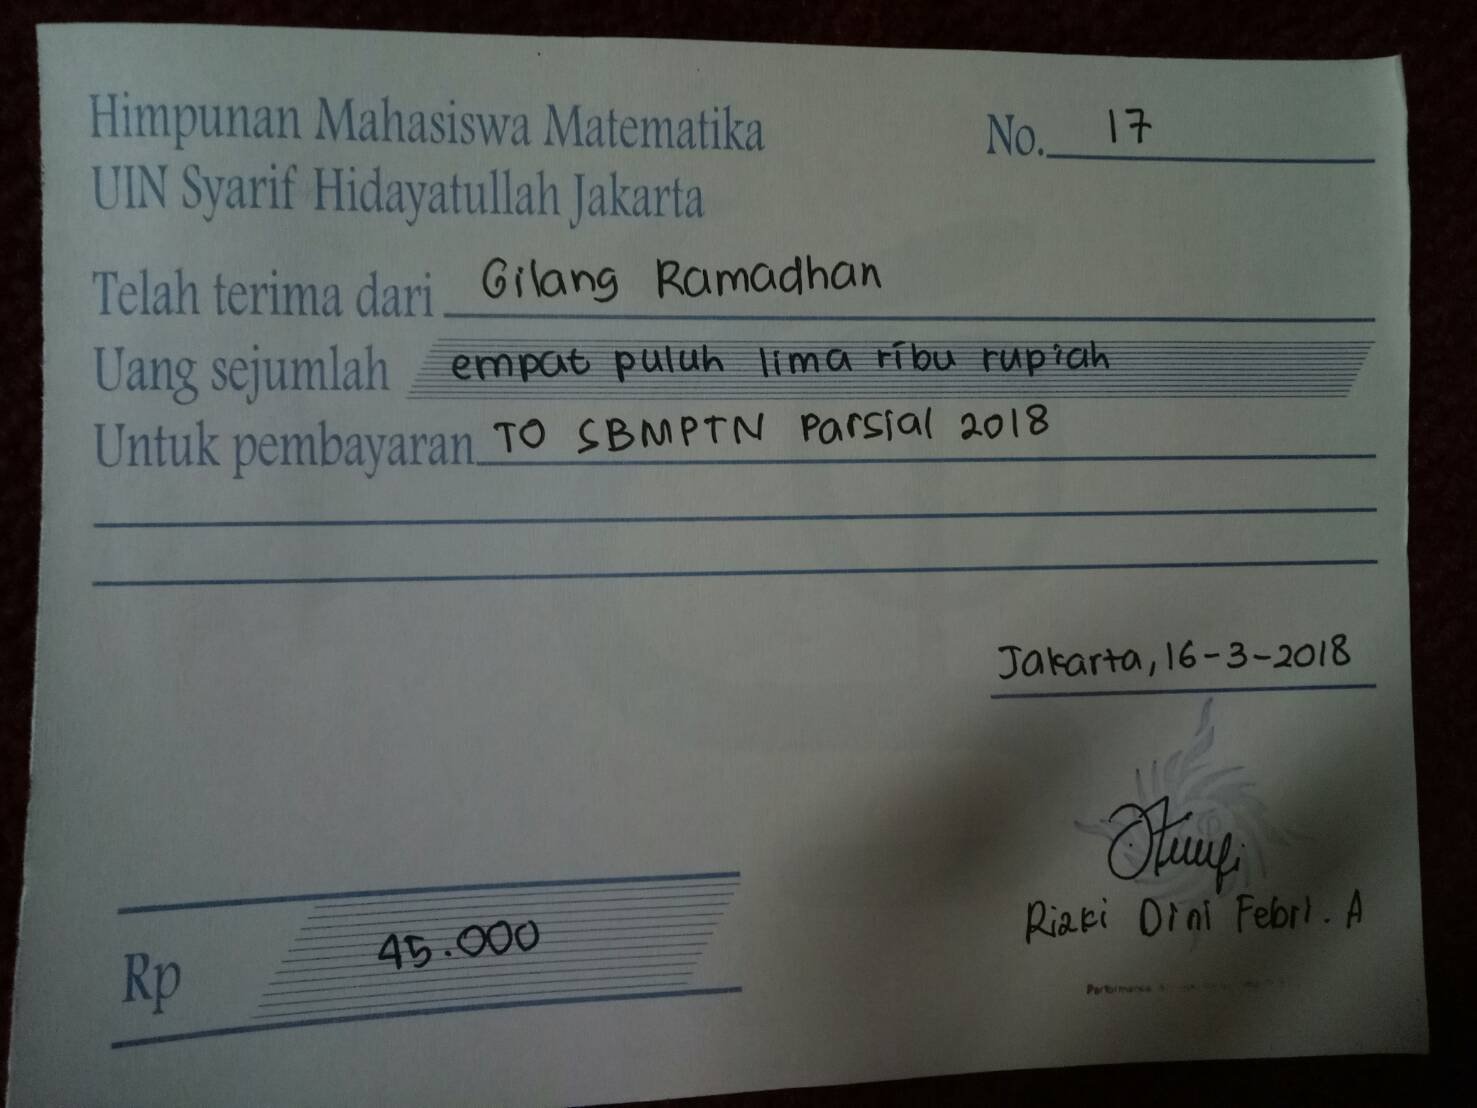 Himpunan Mahasiswa Matematika
UIN Syarif Hidayatullah Jakarta
No. 17
Telah terima dari Gilang Ramadhan
Uang sejumlah empat puluh lima ribu rupiah
Untuk pembayaran TO SBMPTN Parsial 2018
Jakarta, 16-3-2018
Rizki Dini Febri. A
Rp 45.000